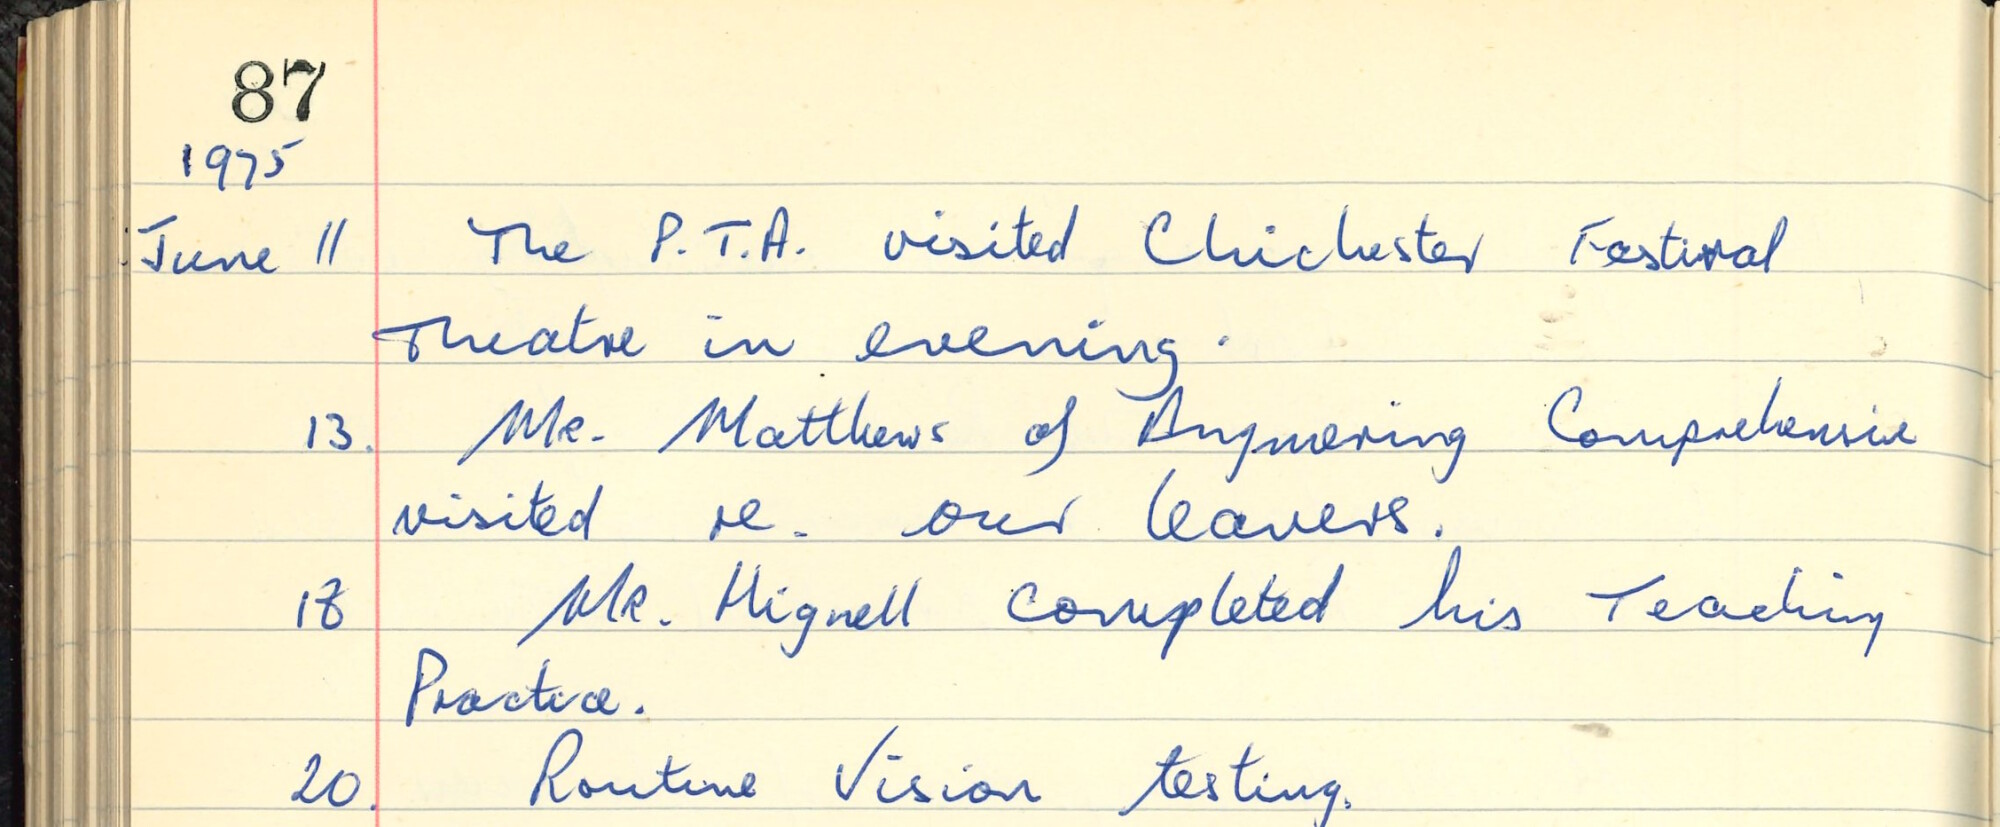 87
1975
June 11 The P.T.A. visited Chichester Festival
Theatre in evening.
13. Mr. Matthews of Angmering Comprehensive
visited re. our leavers.
18 Mr. Hignell completed his Teaching
Practice.
20. Routine Vision testing.